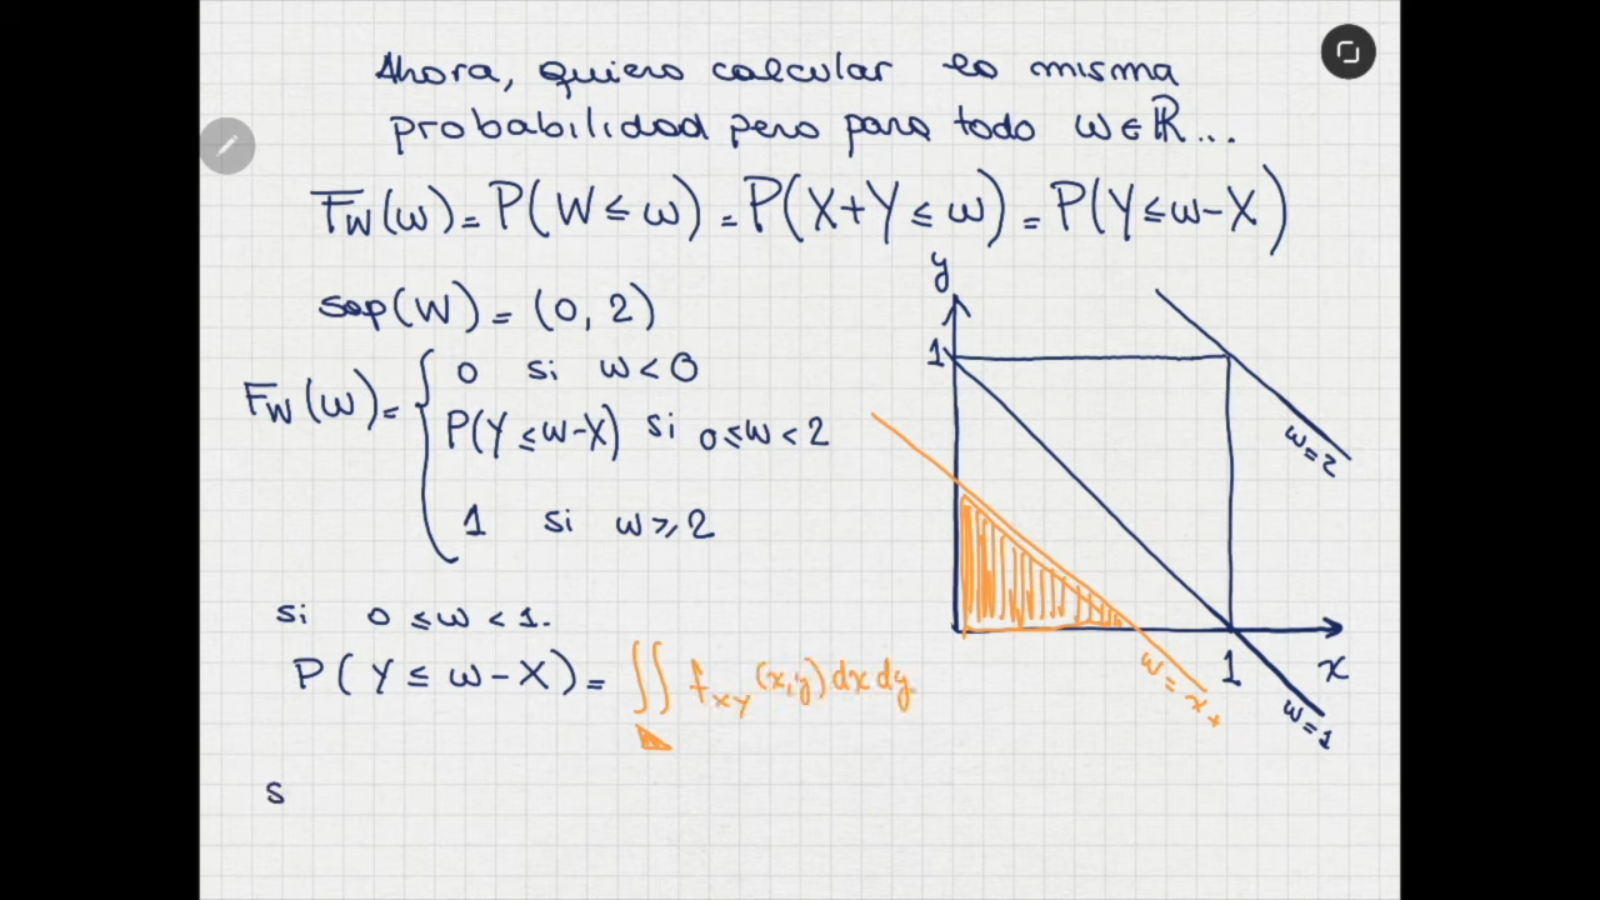 Ahora, quiero calcular la misma
probabilidad pero para todo w∈ℝ...
F_W(w) = P(W ≤ w) = P(X+Y ≤ w) = P(Y ≤ w-X)
sop(W) = (0, 2)
F_W(w) = { 0 si w < 0
P(Y ≤ w-X) si 0 ≤ w < 2
1 si w ≥ 2
si 0 ≤ w < 1.
P(Y ≤ w-X) = ∬ f_XY(x,y) dx dy
s
y
1
w=2
1
x
w = x+
w=1